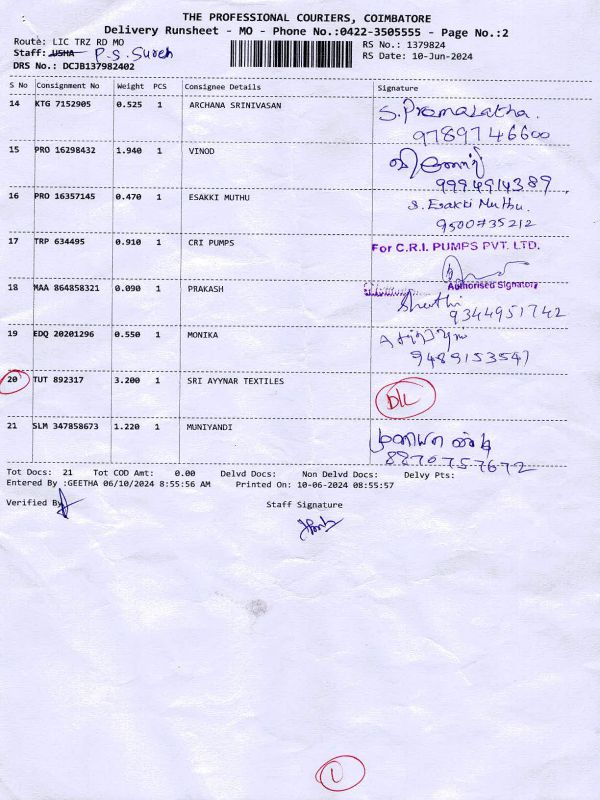 THE PROFESSIONAL COURIERS, COIMBATORE
Delivery Runsheet - MO - Phone No.:0422-3505555 - Page No.:2
Route: LIC TRZ RD MO
RS No.: 1379824
Staff: USHA P.S. Suresh
RS Date: 10-Jun-2024
DRS No.: DCJB137982402
S No Consignment No Weight PCS Consignee Details Signature
14 KTG 7152905 0.525 1 ARCHANA SRINIVASAN
9789746600
15 PRO 16298432 1.940 1 VINOD
9994914389
16 PRO 16357145 0.470 1 ESAKKI MUTHU S. Esakki Muthu.
9500735212
17 TRP 634495 0.910 1 CRI PUMPS For C.R.I. PUMPS PVT. LTD.
Authorised Signatory
18 MAA 864858321 0.090 1 PRAKASH
9344951742
19 EDQ 20201296 0.550 1 MONIKA
9489153547
20 TUT 892317 3.200 1 SRI AYYNAR TEXTILES DLL
21 SLM 347858673 1.220 1 MUNIYANDI
8870757672
Tot Docs: 21 Tot COD Amt: 0.00 Delvd Docs: Non Delvd Docs: Delvy Pts:
Entered By :GEETHA 06/10/2024 8:55:56 AM Printed On: 10-06-2024 08:55:57
Verified By Staff Signature